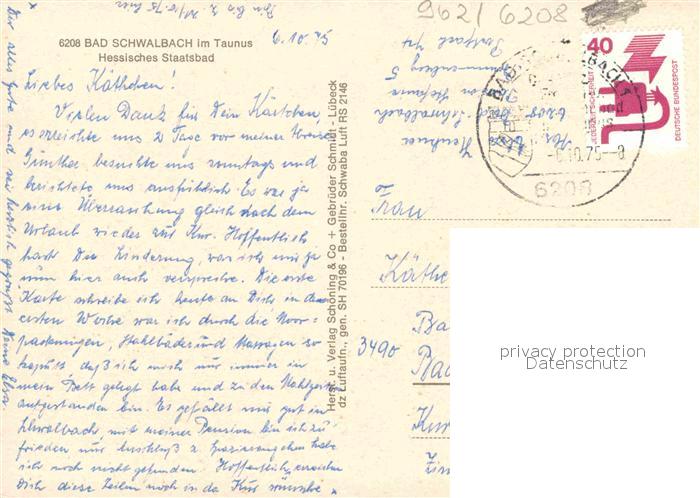 962/6208
6208 BAD SCHWALBACH im Taunus
Hessisches Staatsbad
6.10.75
Liebes Käthchen!
Vielen Dank für Dein Kärtchen,
es erreichte uns 2 Tage vor meiner Abreise
Günther besuchte uns sonntags und
berichtete uns ausführlich. Es war ja
eine Überraschung gleich nach dem
Urlaub wieder zur Kur. Hoffentlich
hast Du Linderung, was ich mir ja
nun hier auch verspreche. Die erste
Karte schreibe ich heute an Dich in der
ersten Woche war ich durch die Moor-
packungen, Stahlbäder und Massagen so
kaputt, daß ich mich nur immer in
mein Bett gelegt habe und zu den Mahlzeiten
aufgestanden bin. Es gefällt mir gut in
Schwalbach, mit meiner Pension bin ich zu-
frieden nur Anschluß z. Spazierengehen habe
ich noch nicht gefunden. Hoffentlich erreichen
Dich diese Zeilen noch in der Kur wünsche
Dir alles Gute und sei herzlich gegrüßt
Herst. u. Verlag Schöning & Co + Gebrüder Schmidt - Lübeck
dz Luftaufn., gen. SH 70196 - Bestellnr. Schwaba Luft RS 2146
6208 Bad Schwalbach
40
JEDERZEIT SICHERHEIT
DEUTSCHE BUNDESPOST
BAD SCHWALBACH 1
-6.10.75--8
6208
Frau
Käthe
3490 Ba
Bad
Kur
Zim
privacy protection
Datenschutz